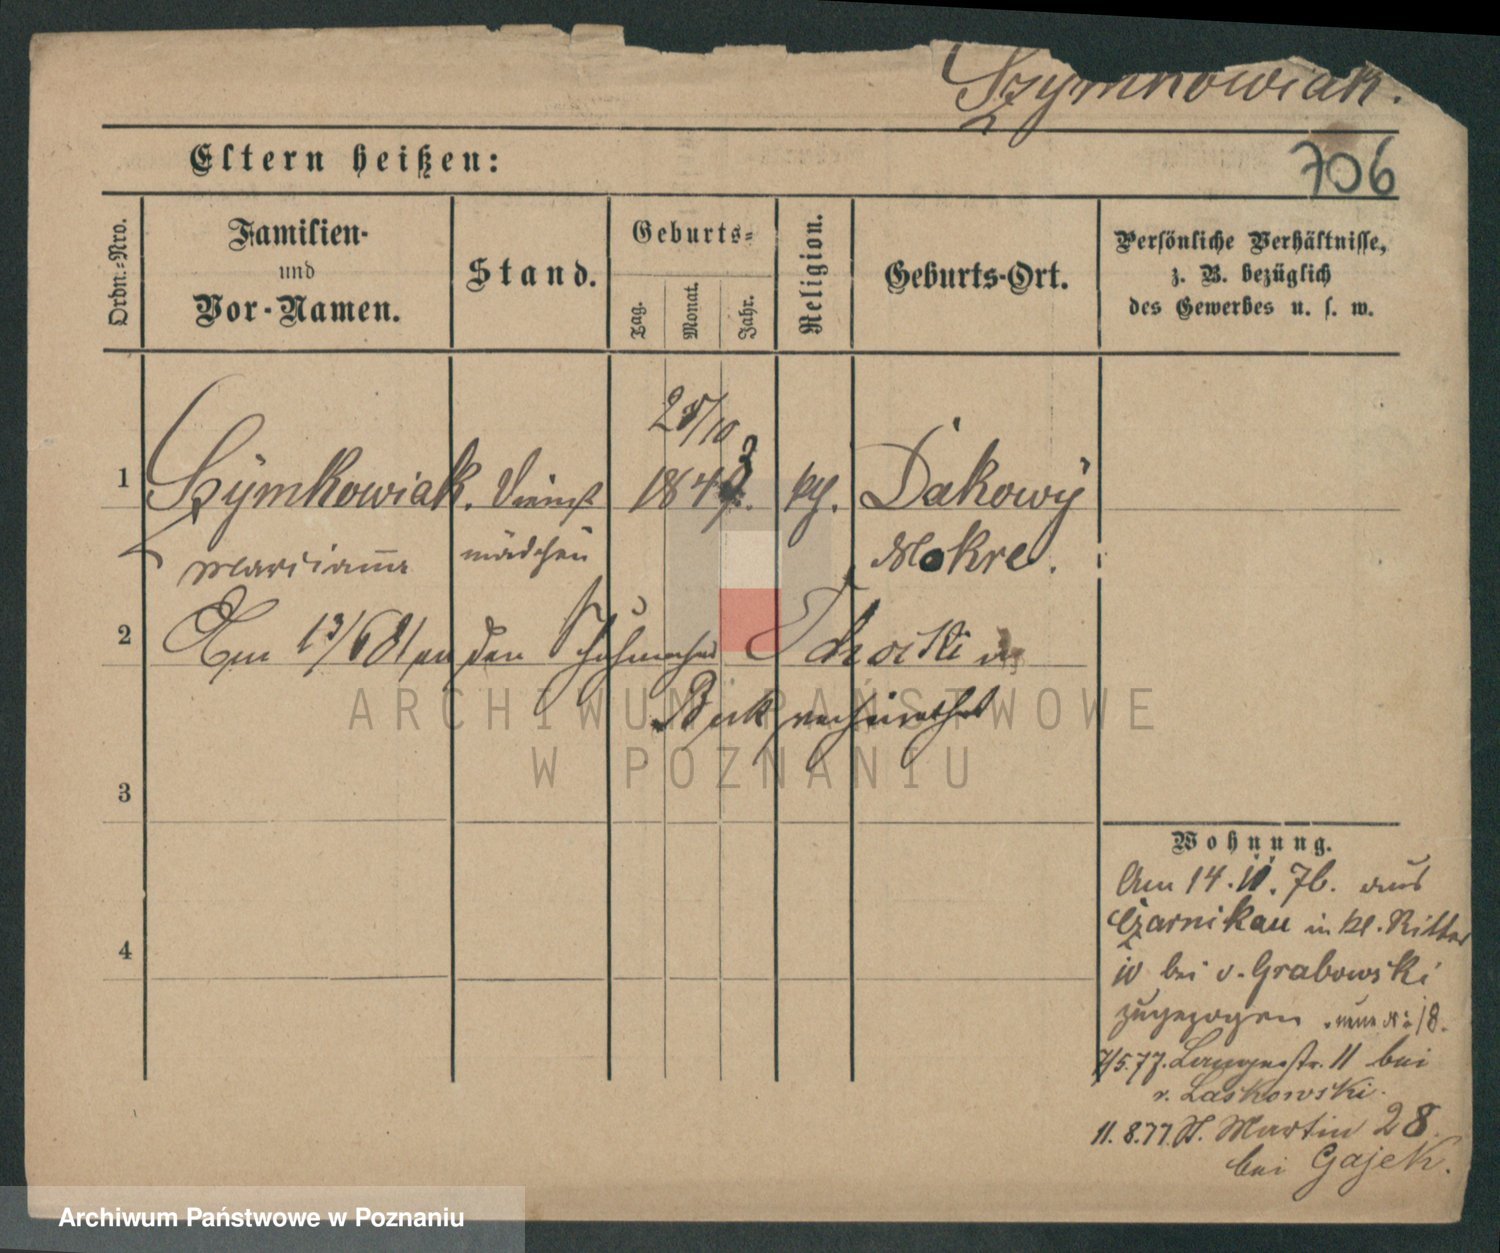 Szymkowiak.
706
Eltern heißen:
Ordn.-Nro.
Familien-
und
Vor-Namen.
Stand.
Geburts-
Tag.
Monat.
Jahr.
Religion.
Geburts-Ort.
Persönliche Verhältnisse,
z. B. bezüglich
des Gewerbes u. s. w.
1
Szymkowiak. Dienst 1843. Dakowÿ
mädchen Mokre.
2
Am 13/6 81 an den Schuhmacher in
Buk verheirathet
3
4
Wohnung.
Am 14. 11. 76. aus
Czarnikau in kl. Ritter
10 bei v. Grabowski
zugezogen. nun No 18.
7/5.77. Langestr. 11 bei
v. Laskowski.
11. 8.77. St. Martin 28.
bei Gajek.
ARCHIWUM PAŃSTWOWE
W POZNANIU
Archiwum Państwowe w Poznaniu